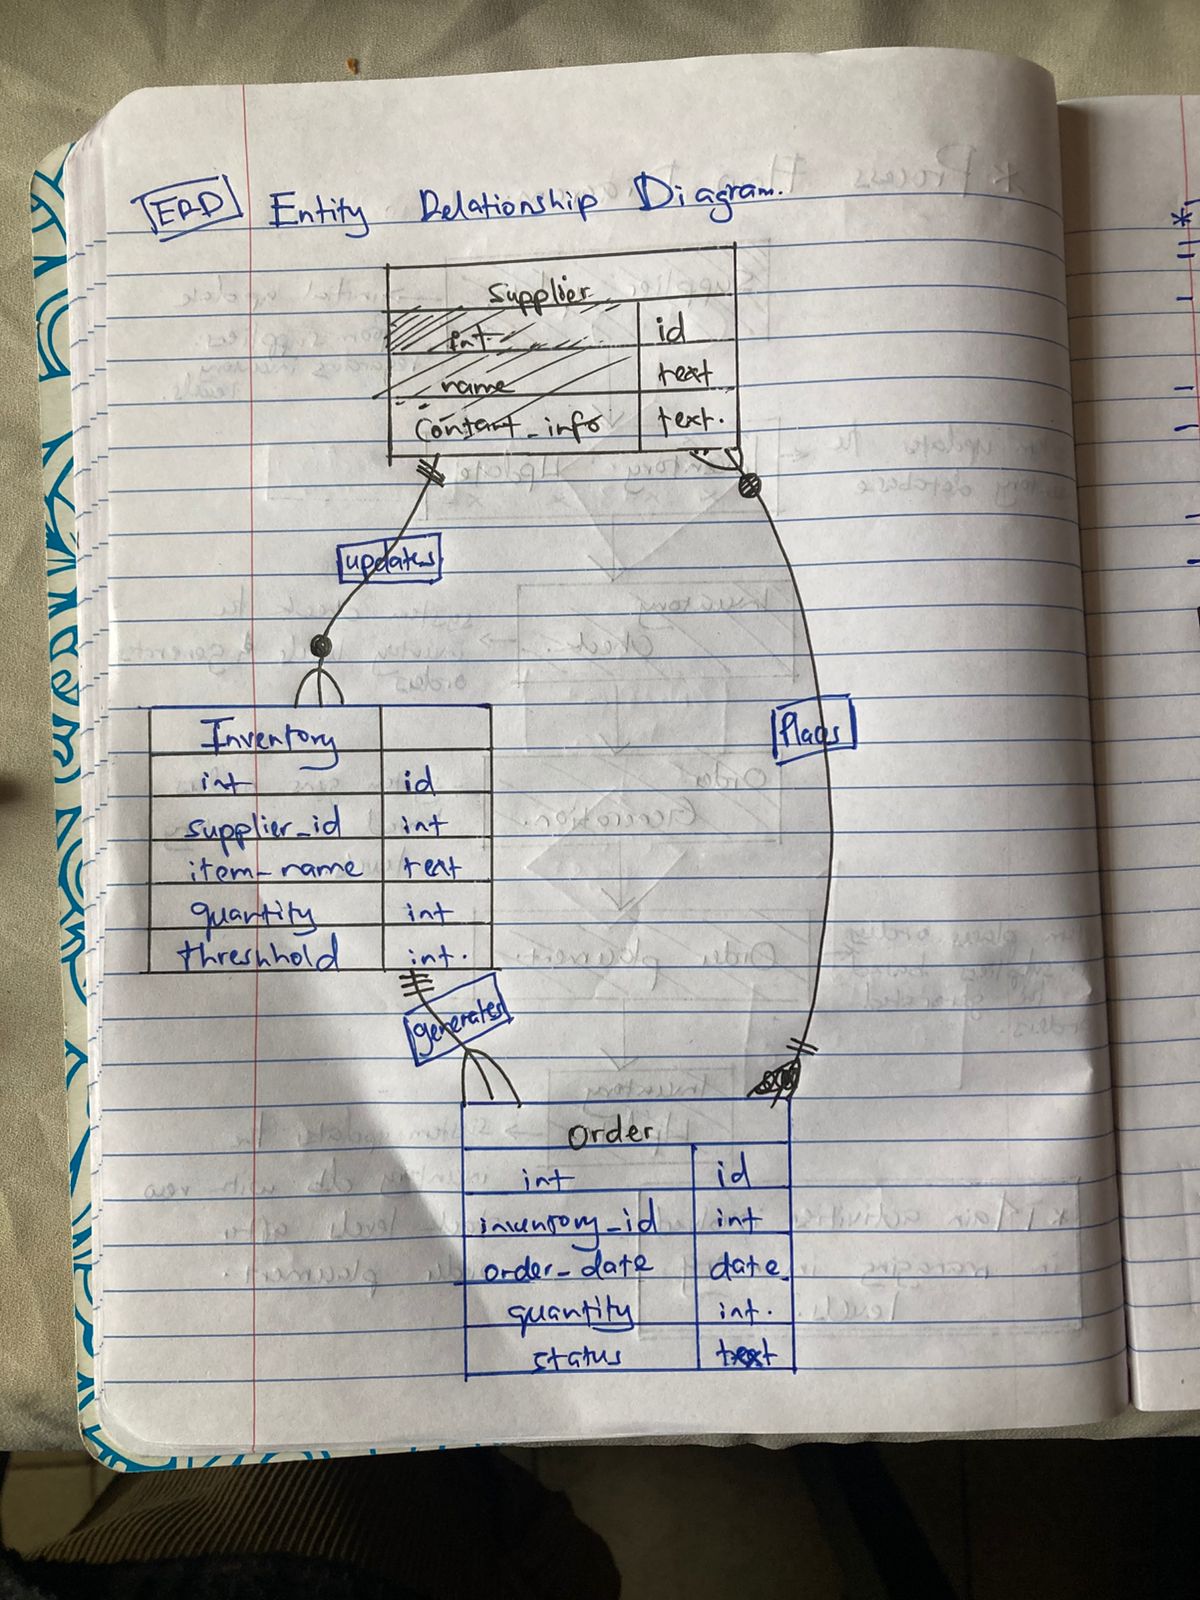 ERD Entity Relationship Diagram.
Supplier
int id
name text
Contant_info text.
updates
Places
Inventory
int id
supplier_id int
item_name text
quantity int
threshhold int.
generates
Order
int id
inventory_id int
order_date date
quantity int.
status text